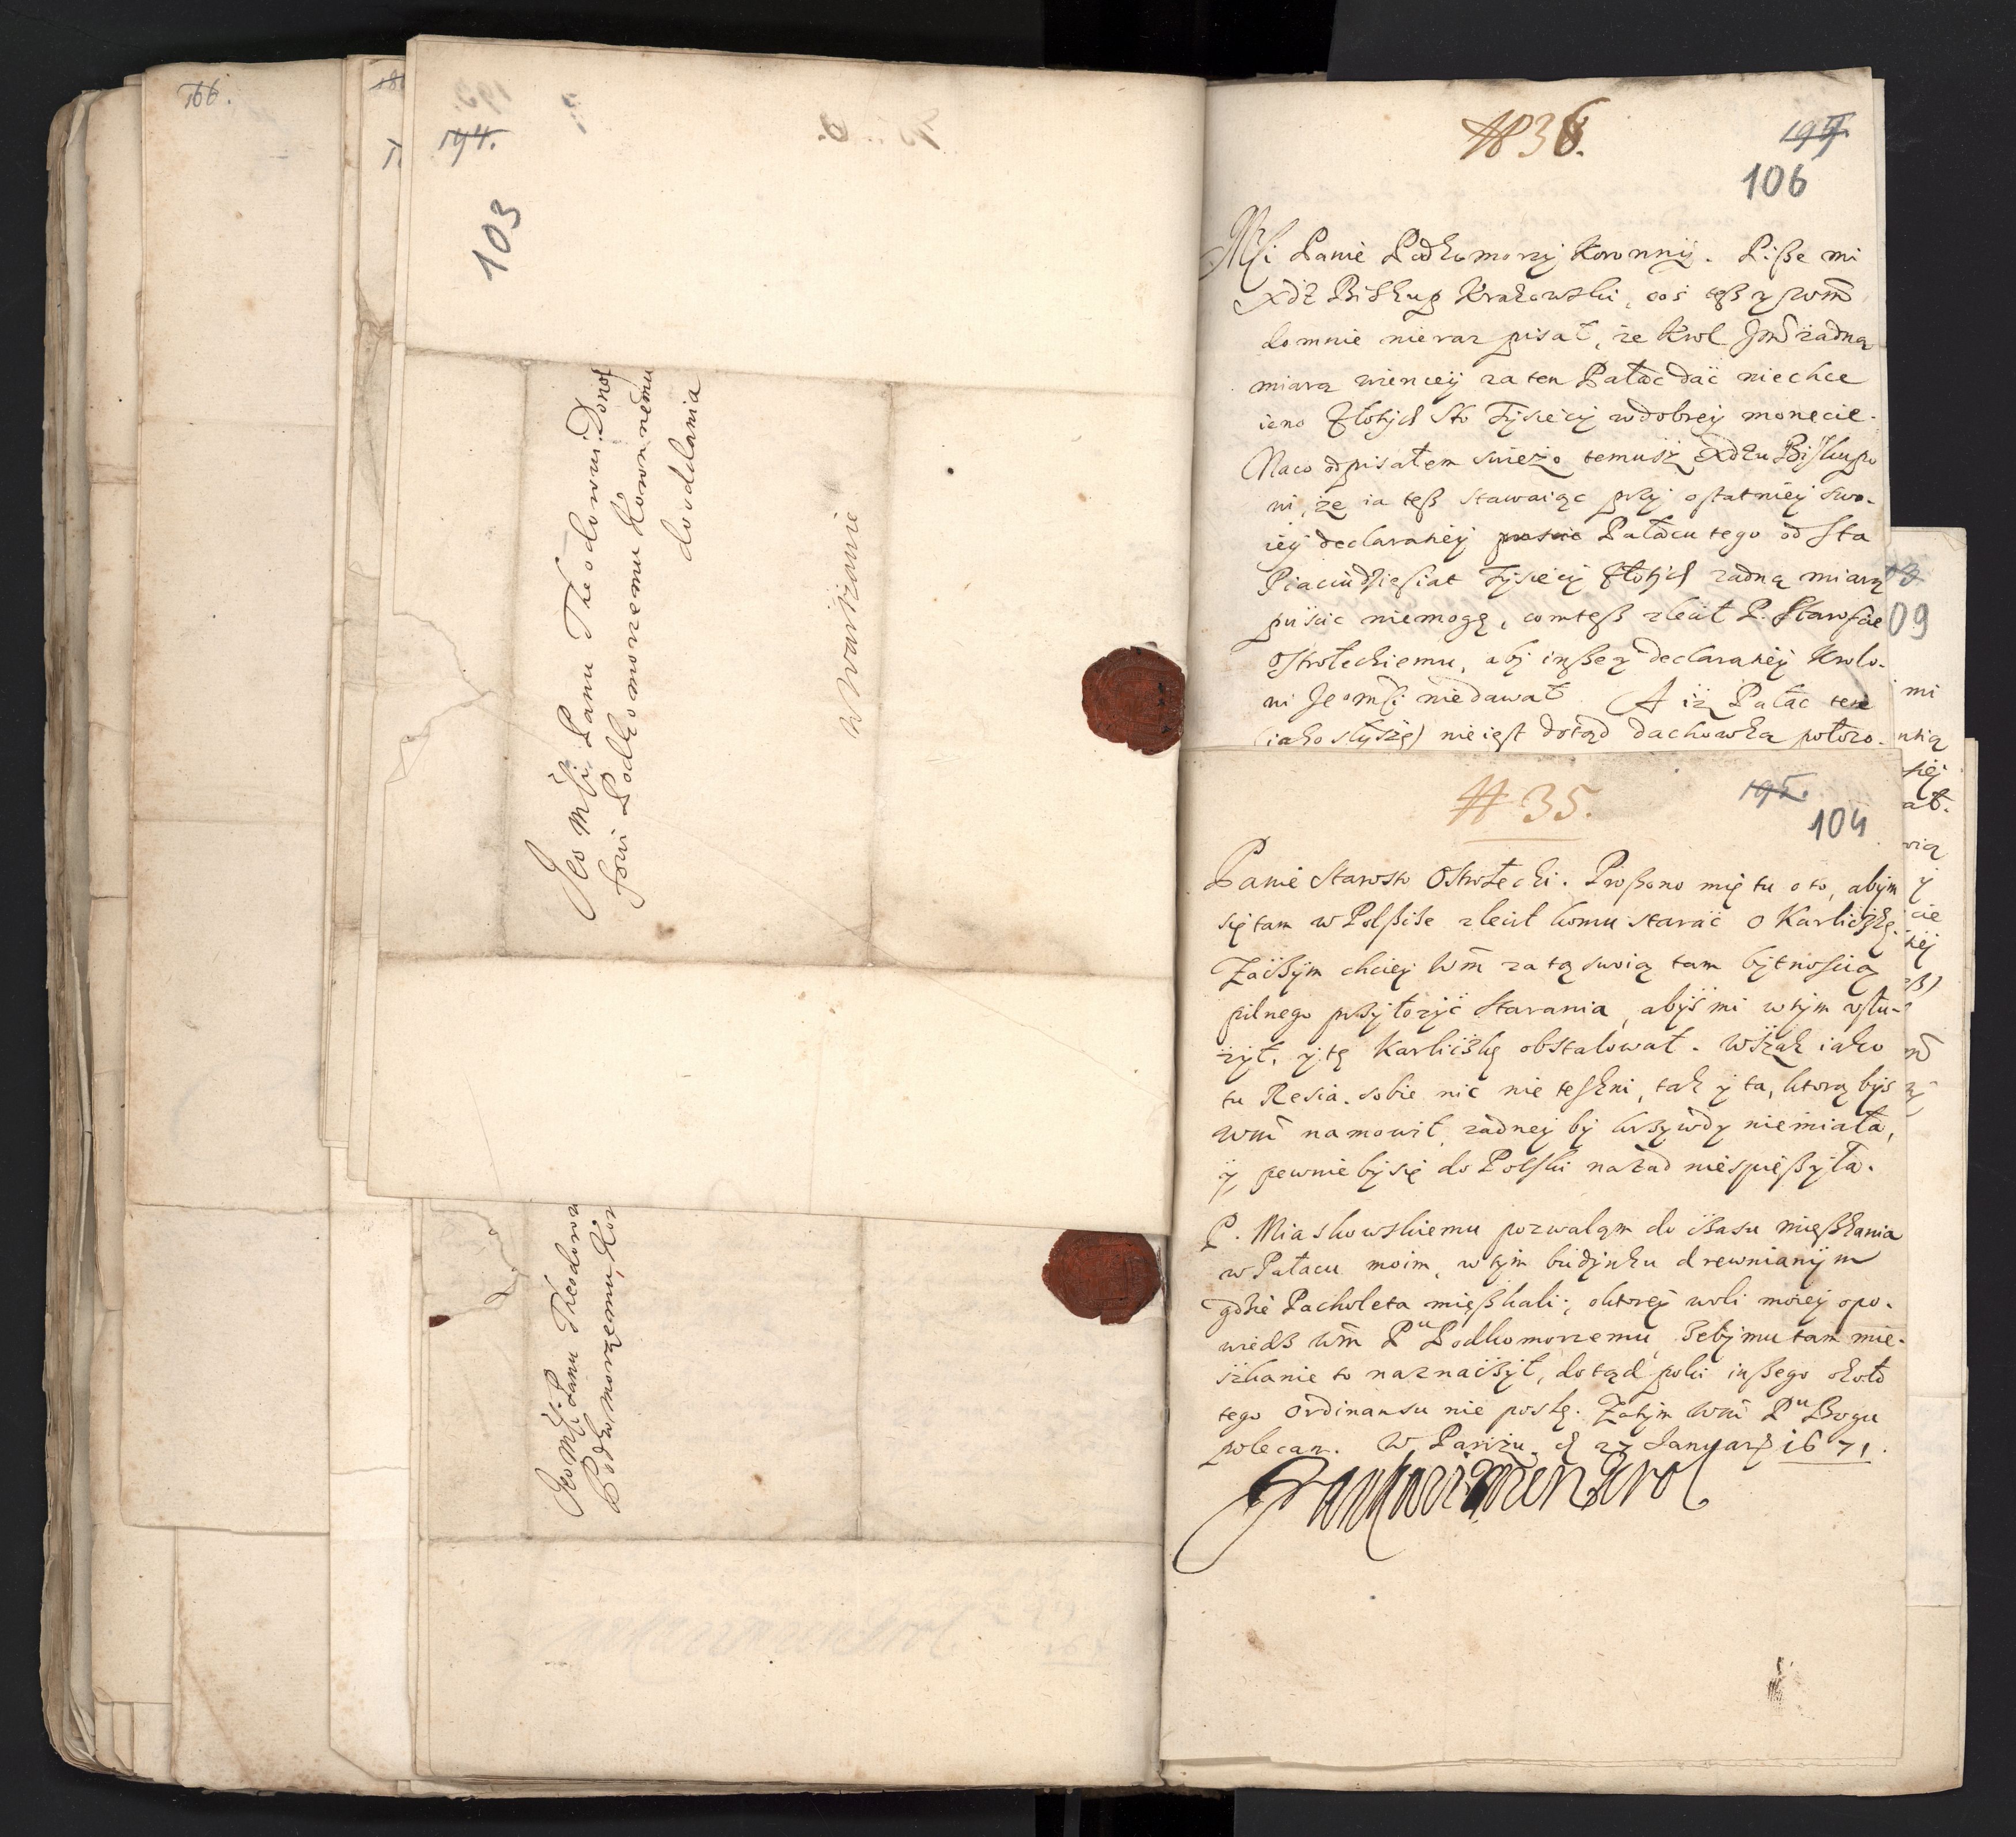 166.
194.
103
Jeo Mśi Panu Theodorowi Donof
fowi Podkomorzemu Koronnemu
do oddania
w Warszawie
Jeo Mśi Panu Theodorow
Podkomorzemu Kor
# 36.
197.
106
Mśi Panie Podkomorzy Koronny. Pisze mi
Xdz Biskup Krakowski, coś tesz y swm̃
do mnie nieraz pisał, że Krol Jm̃ żadną
miarą wiencey za ten Pałac dać niechce
ieno Złotych Sto Tysięcy w dobrey monecie.
Naco odpisałem swieżo temusz Xdzu Biskupo
wi, że ia tesz stawaiąc przy ostatniey swo-
iey declaratiey Pałacu tego od Sta
Piąciudziesiat Tysięcy Złotych żadną miarą
puscic niemogę, comtesz zlecił P. Staroscie
Ostrołeckiemu, aby inszey declaratiey Krolo-
wi Jeomśi niedawał. A iż Pałac ten
(iako słyszę) nie iest dotąd dachowką połozo-
09
mi
# 35.
195.
104
Panie Starosto Ostrołecki. Proszono mię tu o to, abym
się tam w Polszcze zlecił komu starać o Karliczkę.
Zaczym chciey Wm̃ za tą swoią tam bytnoscią
pilnego przyłożyć starania, abyś mi w tym usłu-
żył, y tę Karliczkę obstalował. Wszak iako
tu Resia sobie nic nie teskni, tak y ta, ktorą byś
Wm̃ namowił, żadney by krzywdy niemiała,
y pewnie by się do Polski nazad niespieszyła.
P. Miaskowskiemu pozwalam do czasu mięszkania
w Pałacu moim, w tym budynku drewnianym
gdzie Pacholęta mięszkali; o ktorey woli moiey opo-
wiedz Wm̃ Pu Podkomorzemu, żeby mu tam mie-
szkanie to naznaczył, dotąd poki inszego około
tego ordinansu nie poslę. Zatym Wm̃ Pu Bogu
polecam. W Paryżu d 27 January 1671.
Jan Kazimierz Krol